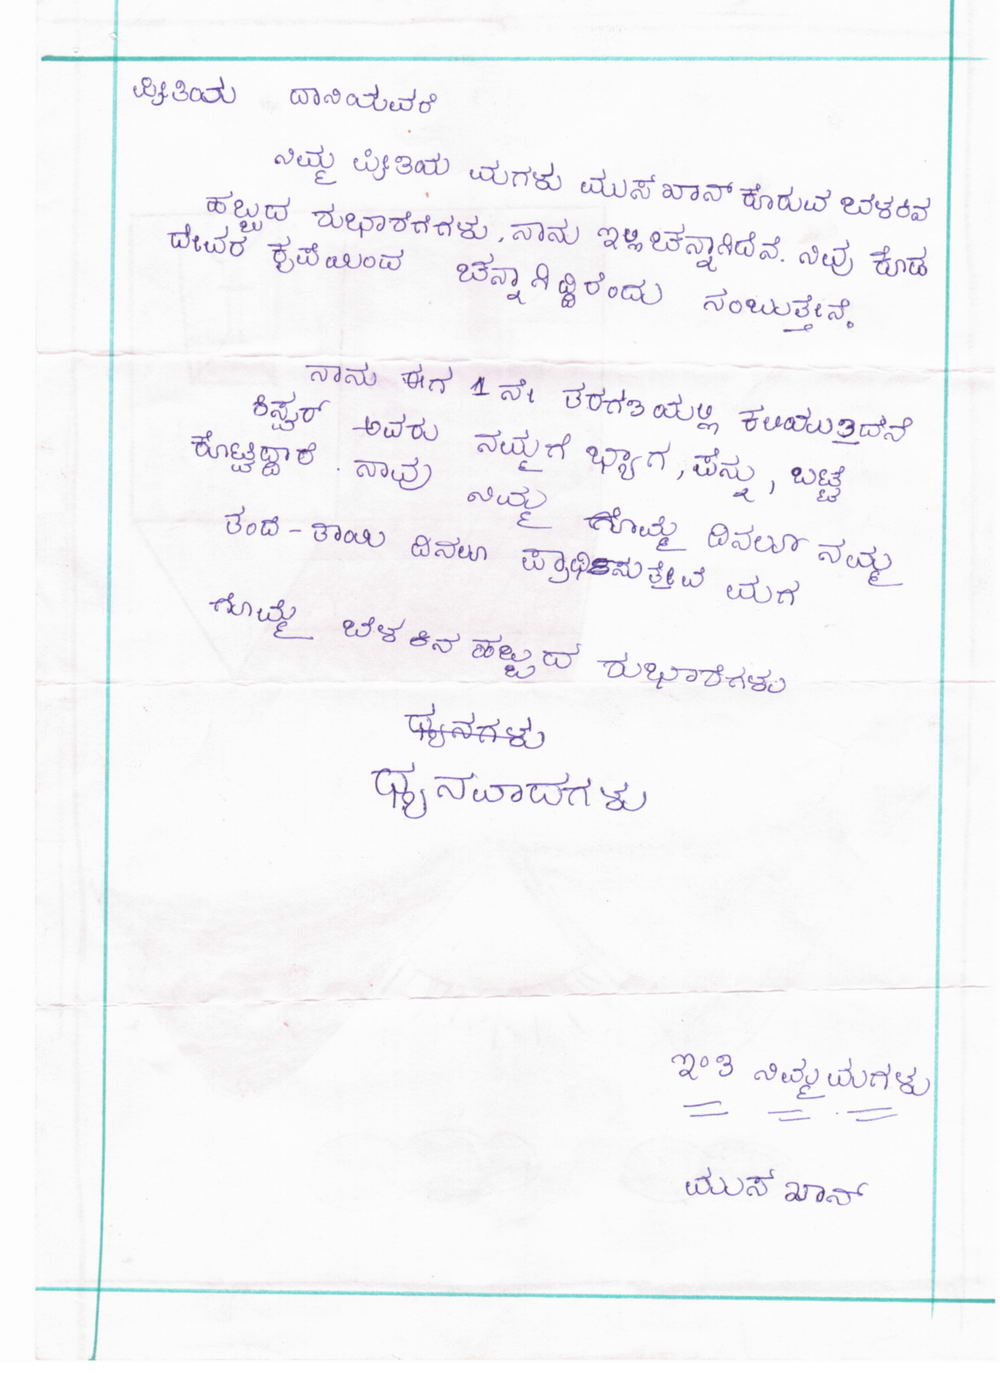 ಪ್ರೀತಿಯ ದಾನಿಯವರೆ
ನಿಮ್ಮ ಪ್ರೀತಿಯ ಮಗಳು ಮುಸ್ ಖಾನ್ ಕೊರುವ ಬೆಳಕಿನ
ಹಬ್ಬದ ಶುಭಾಶೆಗೆಗಳು, ನಾನು ಇಲ್ಲಿ ಚನ್ನಾಗಿದೆನೆ. ನಿವು ಕೊಡ
ದೇವರ ಕೃಪೆಯಿಂದ ಚನ್ನಾಗಿದ್ದಿರೆಂದು ನಂಬುತ್ತೇನೆ.
ನಾನು ಈಗ 1 ನೇ ತರಗತಿಯಲ್ಲಿ ಕಲಿಯುತ್ತಿದೆನೆ
ಸಿಸ್ಟರ್ ಅವರು ನಮ್ಮಗೆ ಭ್ಯಾಗ, ಪೆನ್ನು, ಬಟ್ಟೆ
ಕೊಟ್ಟಿದ್ದಾರೆ. ನಾವು ನಿಮ್ಮ ಗೊಮ್ಮೆ ದಿನಲೂ ನಮ್ಮ
ತಂದೆ - ತಾಯಿ ದಿನಲೂ ಪ್ರಾಥಿಸುತ್ತೇವೆ ಮಗ
ಗೊಮ್ಮೆ ಬೆಳಕಿನ ಹಬ್ಬದ ಶುಭಾಶೆಗಳು
ಧ್ಯನಗಳು
ಧ್ಯನವಾದಗಳು
ಇಂತಿ ನಿಮ್ಮ ಮಗಳು
ಮುಸ್ ಖಾನ್